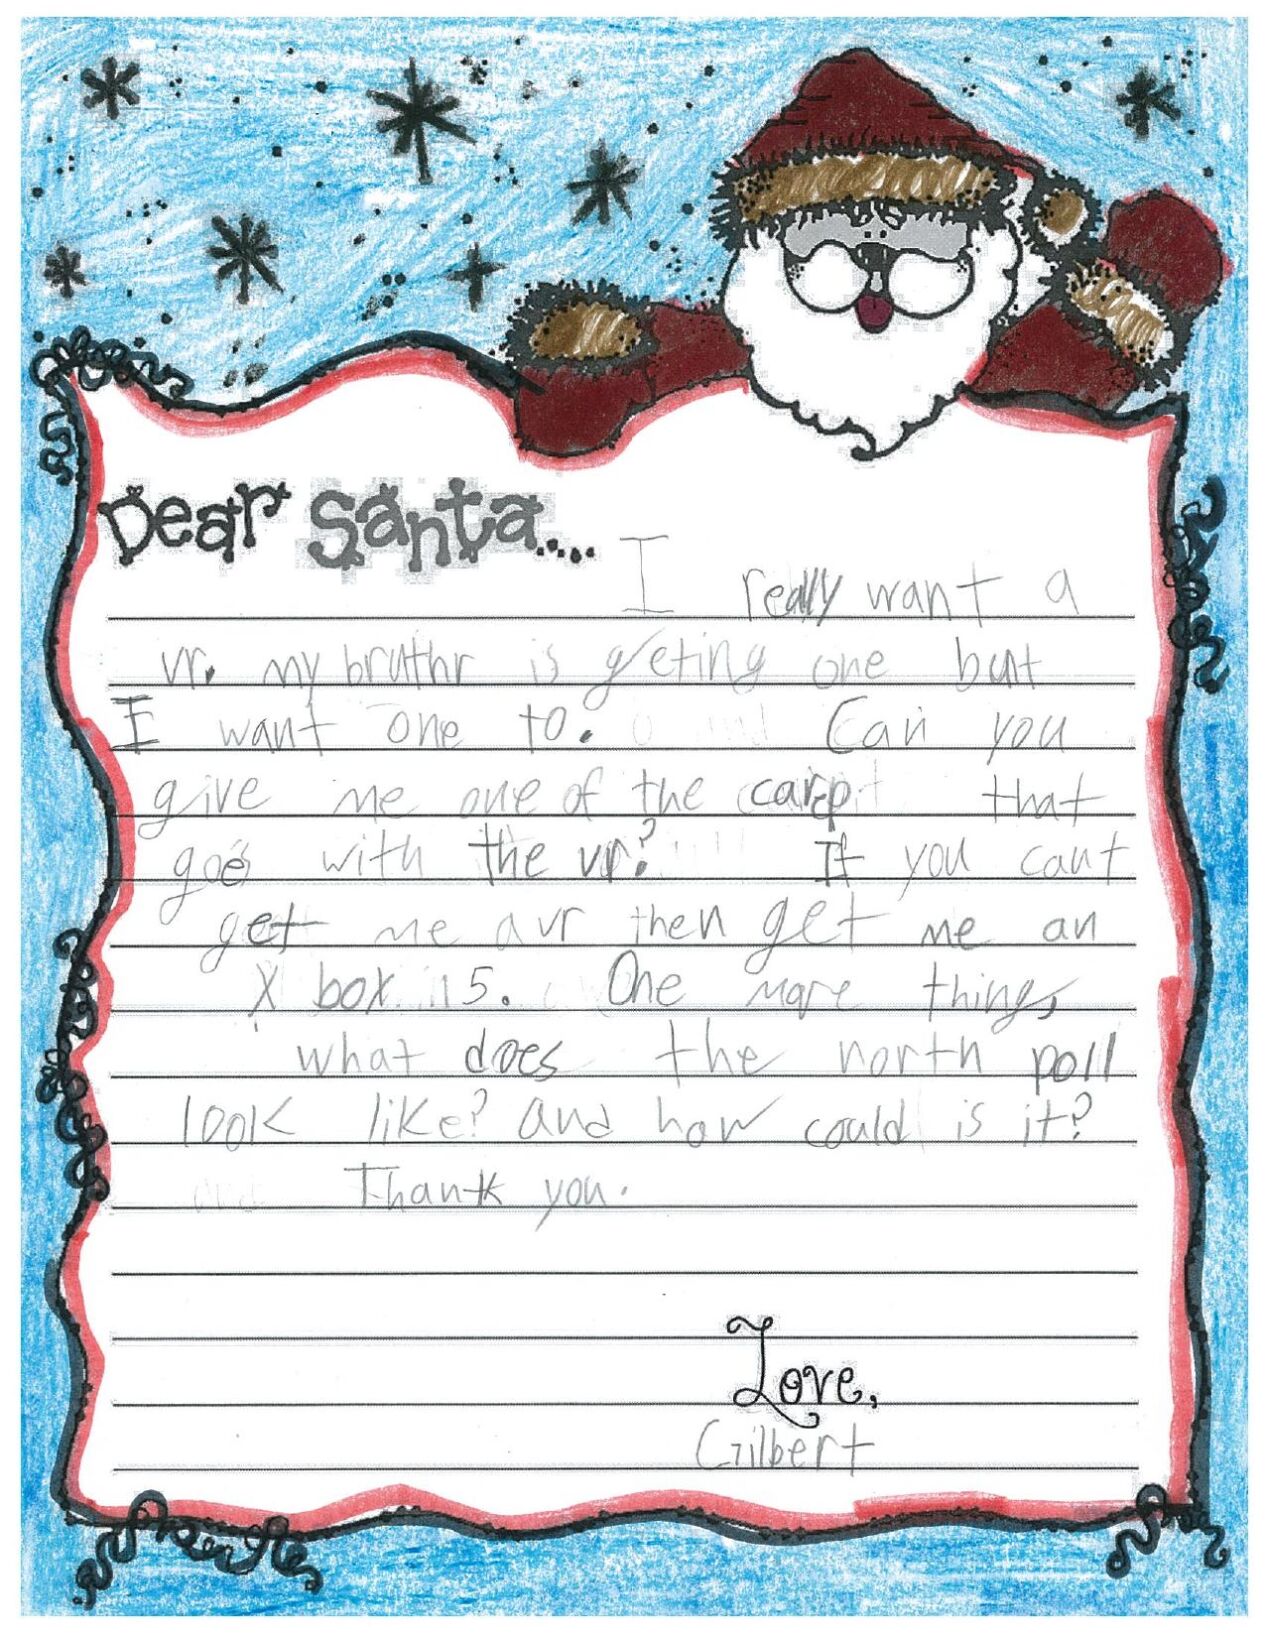 Dear Santa....
I really want a
vr. my bruthr is geting one but
I want one to. Can you
give me one of the carep that
goes with the vr? If you cant
get me a vr then get me an
X box 5. One more thing,
what does the north poll
look like? and how could is it?
Thank you.
Love,
Gilbert